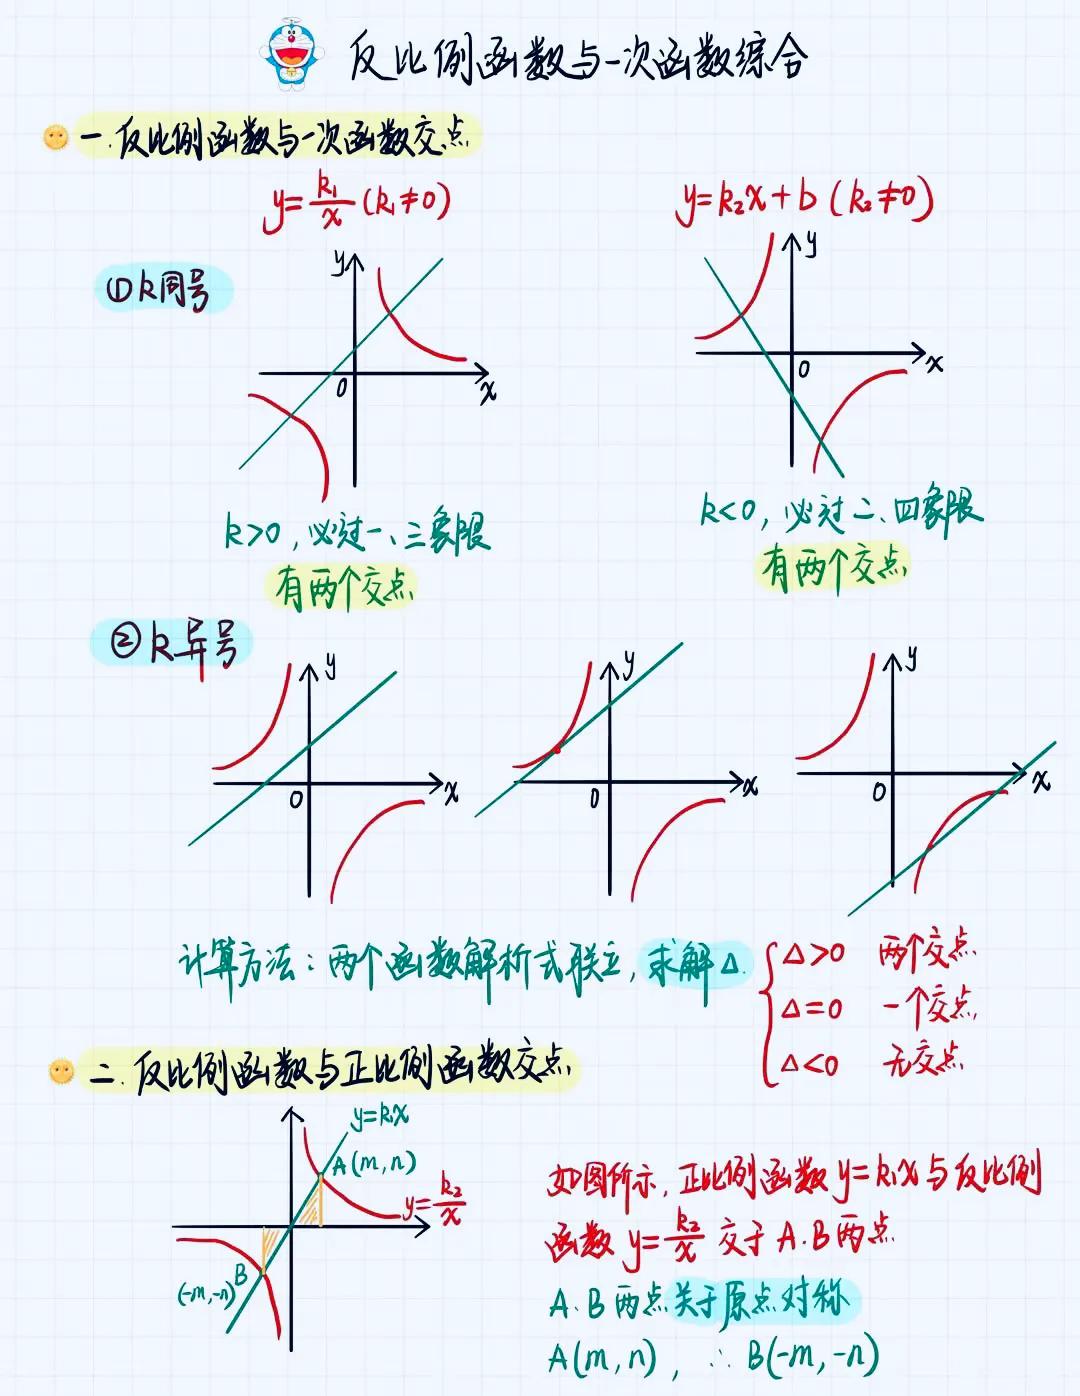 反比例函数与一次函数综合
一.反比例函数与一次函数交点
y=k₁/x (k₁≠0)
y=k₂x+b (k₂≠0)
①k同号
y
x
0
y
x
0
k>0,必过一、三象限
有两个交点
k<0,必过二、四象限
有两个交点
②k异号
y
x
0
y
x
0
y
x
0
计算方法:两个函数解析式联立,求解△
△>0 两个交点
△=0 一个交点
△<0 无交点
二.反比例函数与正比例函数交点
y=k₁x
A(m,n)
y=k₂/x
B
(-m,-n)
如图所示,正比例函数y=k₁x与反比例
函数y=k₂/x交于A.B两点
A.B两点关于原点对称
A(m,n),∴B(-m,-n)